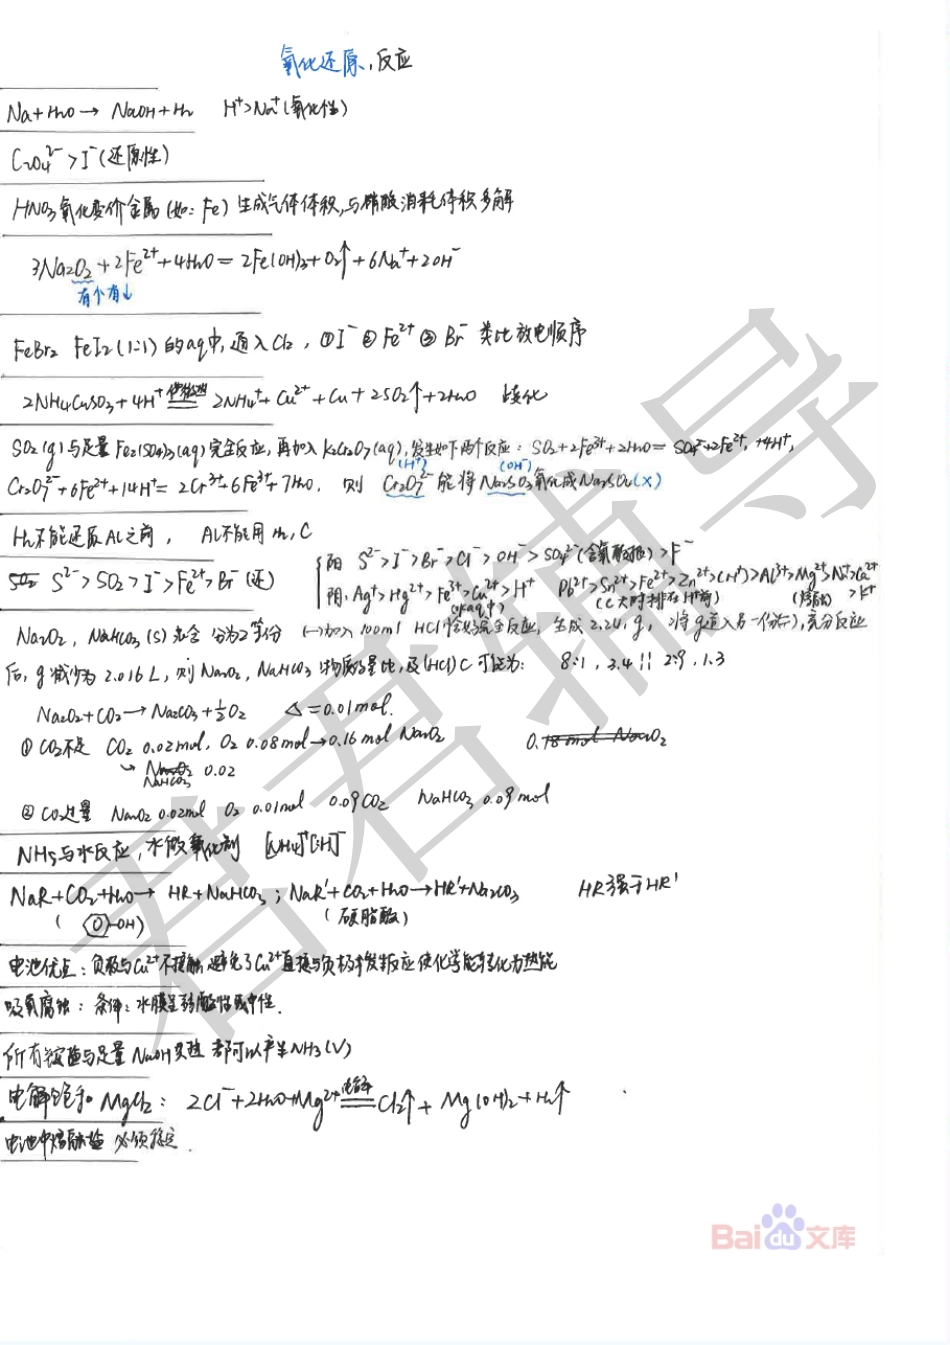 氧化还原反应
Na+H₂O → NaOH+H₂ H⁺>Na⁺(氧化性)
C₂O₄²⁻>I⁻(还原性)
HNO₃氧化变价金属(如:Fe)生成气体体积,与硝酸消耗体积多解
3Na₂O₂+2Fe²⁺+4H₂O=2Fe(OH)₃+O₂↑+6Na⁺+2OH⁻
有个有↓
FeBr₂ FeI₂(1:1)的aq中,通入Cl₂, ①I⁻②Fe²⁺③Br⁻ 类比放电顺序
2NH₄CuSO₃+4H⁺ 2NH₄⁺+Cu²⁺+Cu+2SO₂↑+2H₂O 歧化
SO₂(g)与足量Fe₂(SO₄)₃(aq)完全反应,再加入K₂Cr₂O₇(aq),发生如下两个反应:SO₂+2Fe³⁺+2H₂O=SO₄²⁻+2Fe²⁺,+4H⁺,
(H⁺) (OH⁻)
Cr₂O₇²⁻+6Fe²⁺+14H⁺=2Cr³⁺+6Fe³⁺+7H₂O. 则 Cr₂O₇²⁻能将Na₂SO₃氧化成Na₂SO₄(×)
H₂不能还原Al之前, Al不能用H₂,C
S²⁻>SO₂>I⁻>Fe²⁺>Br⁻(还)
阳 S²⁻>I⁻>Br⁻>Cl⁻>OH⁻>SO₄²⁻(含氧酸根)>F⁻
阴:Ag⁺>Hg²⁺>Fe³⁺>Cu²⁺>H⁺ Pb²⁺>Sn²⁺>Fe²⁺>Zn²⁺>(H⁺)>Al³⁺>Mg²⁺>Na⁺>Ca²⁺>K⁺
(水aq中) (C大时排在H⁺前) (熔融)
Na₂O₂,NaHCO₃(s)混合 分为2等份 (一)加入100ml HCl恰好完全反应,生成2.24L g, 将g通入另一份(二),充分反应
后,g减少为2.016L,则Na₂O₂,NaHCO₃物质的量比,及(HCl)C可能为: 8:1,3.4 || 2:9,1.3
Na₂O₂+CO₂→Na₂CO₃+½O₂ △=0.01mol.
①CO₂不足 CO₂ 0.02mol, O₂ 0.08mol→0.16mol Na₂O₂
NaHCO₃ 0.02
②CO₂过量 Na₂O₂ 0.02mol O₂ 0.01mol 0.09CO₂ NaHCO₃ 0.09mol
与水反应,水做氧化剂 [NH₄]⁺[:H]⁻
NaR+CO₂+H₂O→HR+NaHCO₃; NaR'+CO₂+H₂O→HR'+Na₂CO₃ HR强于HR'
( -OH) (硬脂酸)
电池优点:负极与Cu²⁺不接触,避免了Cu²⁺直接与负极并发生反应使化学能转化为热能
吸氧腐蚀:条件:水膜呈弱酸性或中性.
所有铵盐与足量NaOH共热都可以产生NH₃(√)
电解饱和MgCl₂: 2Cl⁻+2H₂O+Mg²⁺ 电解 Cl₂↑+Mg(OH)₂+H₂↑
电池中熔融盐必须稳定.
君君辅导
Baidu文库